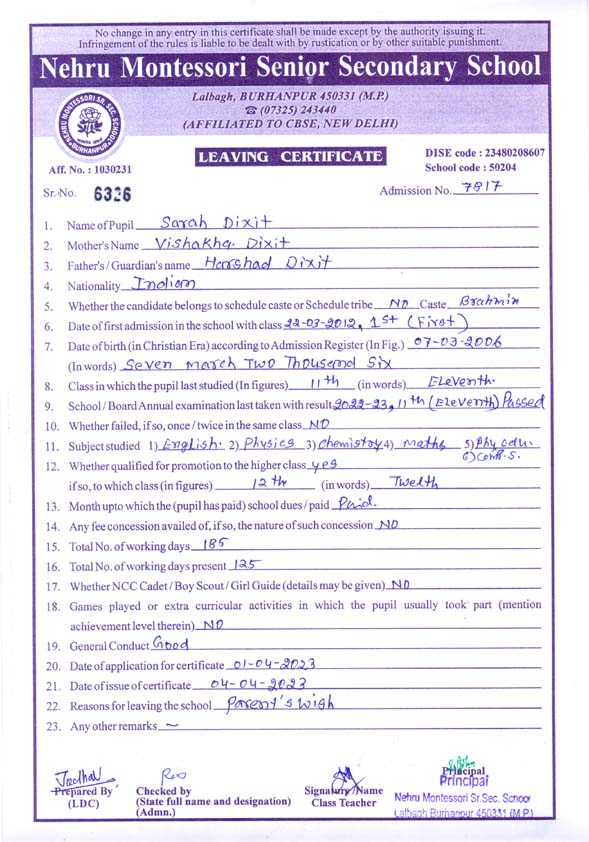 No change in any entry in this certificate shall be made except by the authority issuing it.
Infringement of the rules is liable to be dealt with by rustication or by other suitable punishment.
Nehru Montessori Senior Secondary School
Lalbagh, BURHANPUR 450331 (M.P.)
☎ (07325) 243440
(AFFILIATED TO CBSE, NEW DELHI)
NEHRU MONTESSORI SR. SEC. SCHOOL
BURHANPUR
LEAVING CERTIFICATE
DISE code : 23480208607
Aff. No. : 1030231
School code : 50204
Sr. No. 6326
Admission No. 7817
1. Name of Pupil Sarah Dixit
2. Mother's Name Vishakha. Dixit
3. Father's / Guardian's name Harshad Dixit
4. Nationality Indian
5. Whether the candidate belongs to schedule caste or Schedule tribe NO Caste Brahmin
6. Date of first admission in the school with class 22-03-2012, 1st (First)
7. Date of birth (in Christian Era) according to Admission Register (In Fig.) 07-03-2006
(In words) Seven March Two Thousand Six
8. Class in which the pupil last studied (In figures) 11th (in words) Eleventh.
9. School / Board Annual examination last taken with result 2022-23, 11th (Eleventh) Passed
10. Whether failed, if so, once / twice in the same class NO
11. Subject studied 1) English. 2) Physics 3) Chemistry 4) Maths 5) Phy edu.
6) Comp. S.
12. Whether qualified for promotion to the higher class yes
if so, to which class (in figures) 12th (in words) Twelth
13. Month upto which the (pupil has paid) school dues / paid Paid.
14. Any fee concession availed of, if so, the nature of such concession NO
15. Total No. of working days 185
16. Total No. of working days present 125
17. Whether NCC Cadet / Boy Scout / Girl Guide (details may be given) NO
18. Games played or extra curricular activities in which the pupil usually took part (mention
achievement level therein) NO
19. General Conduct Good
20. Date of application for certificate 01-04-2023
21. Date of issue of certificate 04-04-2023
22. Reasons for leaving the school Parent's wish
23. Any other remarks ~
Prepared By
(LDC)
Checked by
(State full name and designation)
(Admn.)
Signature / Name
Class Teacher
Principal
Principal
Nehru Montessori Sr.Sec. School
Lalbagh Burhanpur 450331 (M.P.)